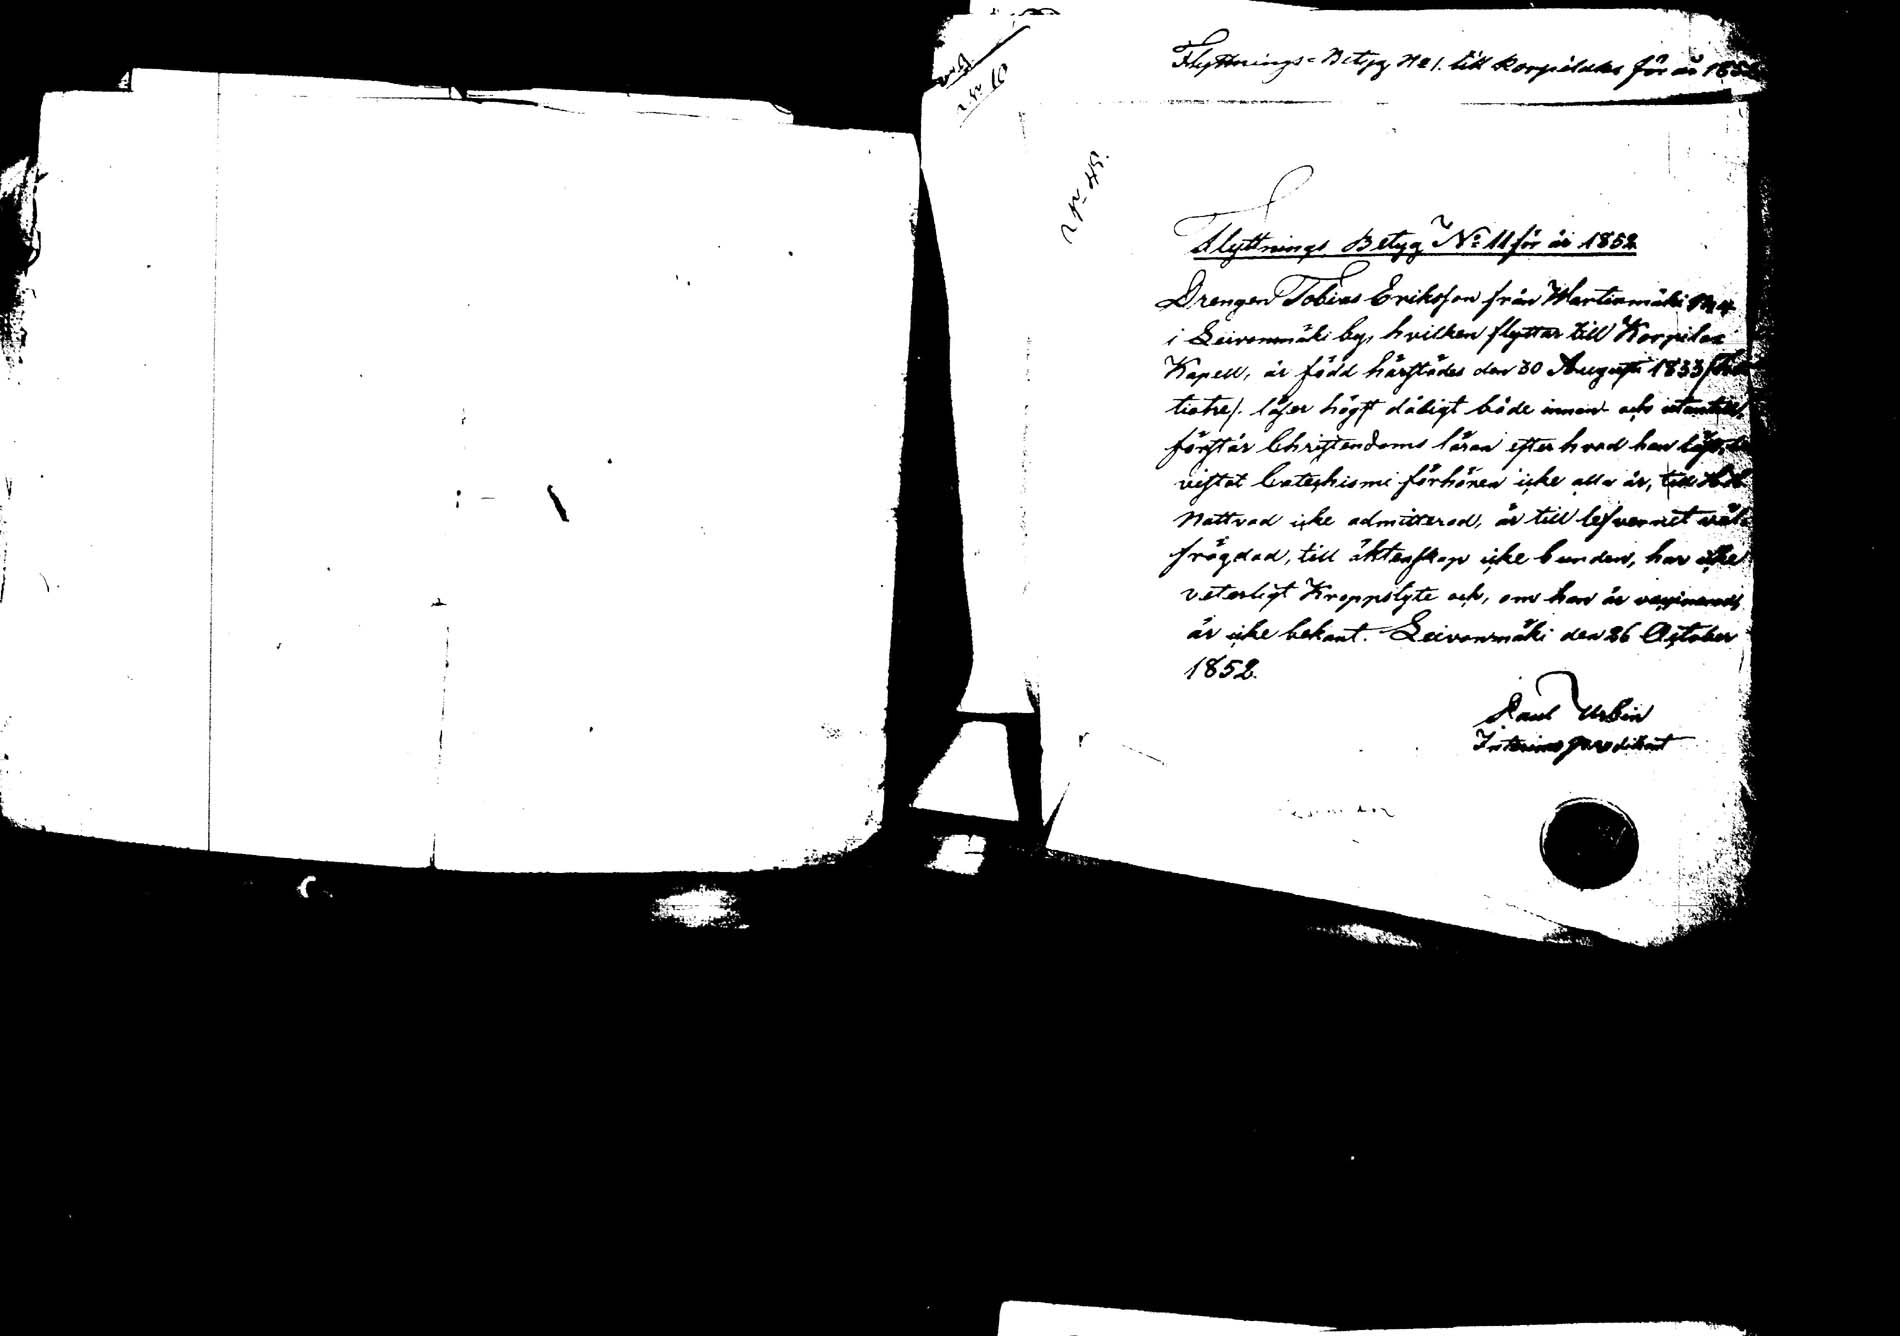 Flyttnings-Betyg No 1. till Korpilaks för år 185
No 10
No 48.
Flyttnings Betyg No 11 för år 1852
Drengen Tobias Eriksson från Martinmäki No 4
i Leivonmäki by, hvilken flyttar till Korpilax
Kapell, är född härstädes den 30 Augusti 1833
läser högst dåligt både innan- och utantill,
förstår Christendoms läran efter hvad han läst,
vistat Catechismi förhören icke alla år, till H
Nattvad icke admitterad, är till lefvernet väl-
frägdad, till äktenskap icke bunden, har icke
veterligt Kroppslyte och, om han är vaccinerad,
är icke bekant. Leivonmäki den 26 October
1852.
Paul Urbin
Interims predikant